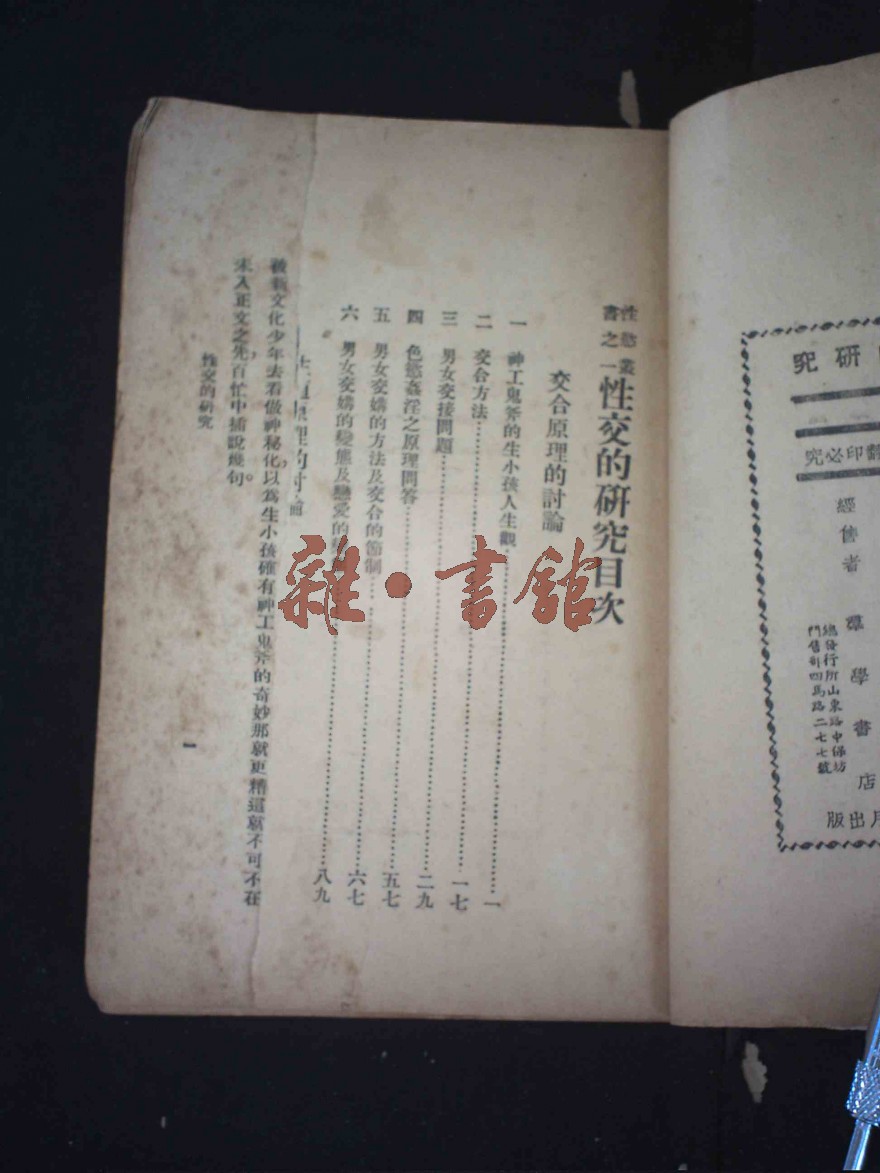 究
研
翻印必究
經售者
羣學書店
總發行所山東路中保坊
門售部四馬路二七七號
月出版
性慾叢書之一
性交的研究目次
交合原理的討論
一 神工鬼斧的生小孩人生觀……一
二 交合方法……一七
三 男女交接問題……二九
四 色慾姦淫之原理問答……五七
五 男女交媾的方法及交合的節制……六七
六 男女交媾的變態及戀愛的……八九
原理的討論
被新文化少年去看做神秘化以爲生小孩確有神工鬼斧的奇妙那就更糟這就不可不在
未入正文之先,百忙中插說幾句。
性交的研究
一
雜·書館